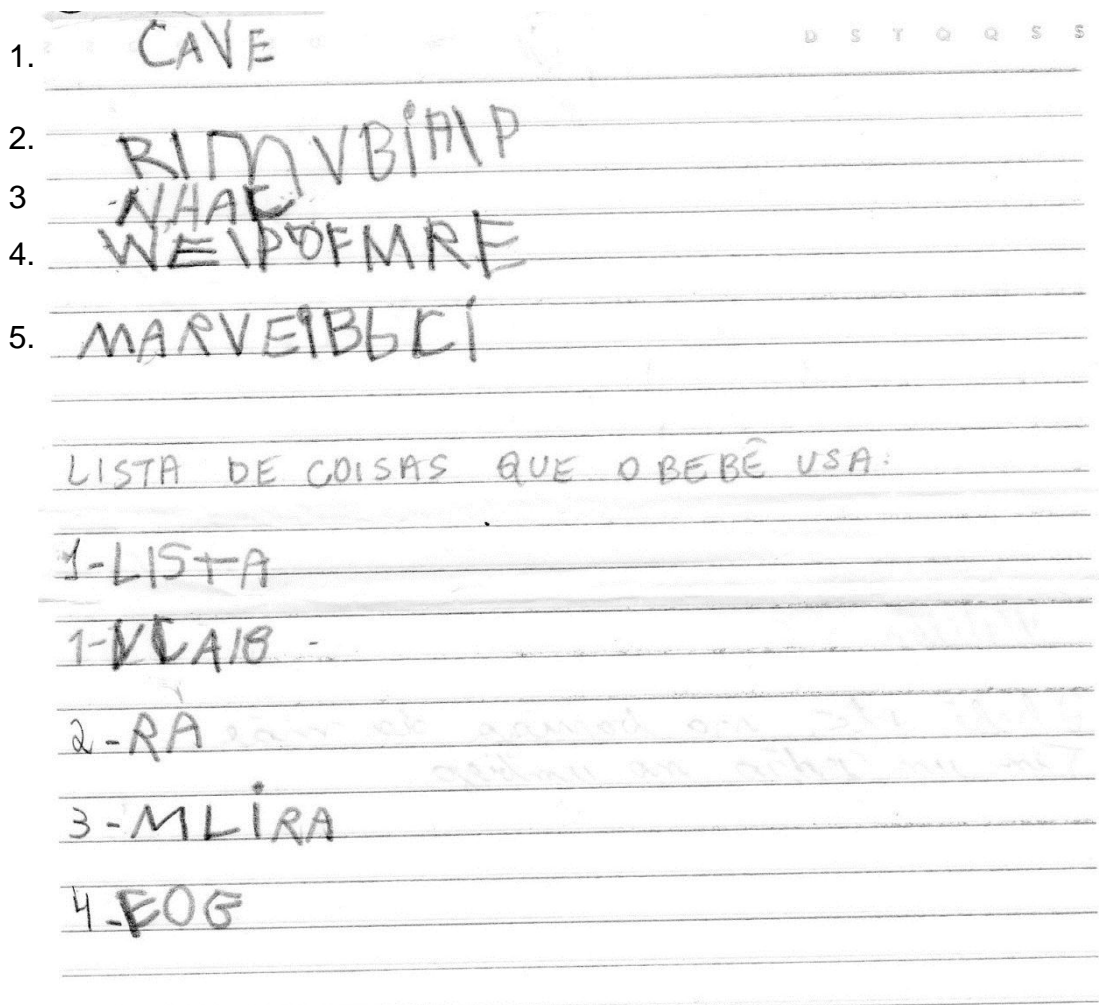 D S T Q Q S S
1. CAVE
2. RIMVBIAIP
3 NHAE
4. WEIPOFMRE
5. MARVEIBBCI
LISTA DE COISAS QUE O BEBÊ USA:
1-LISTA
1-VLAIB
2-RA
3-MLIRA
4-EOG